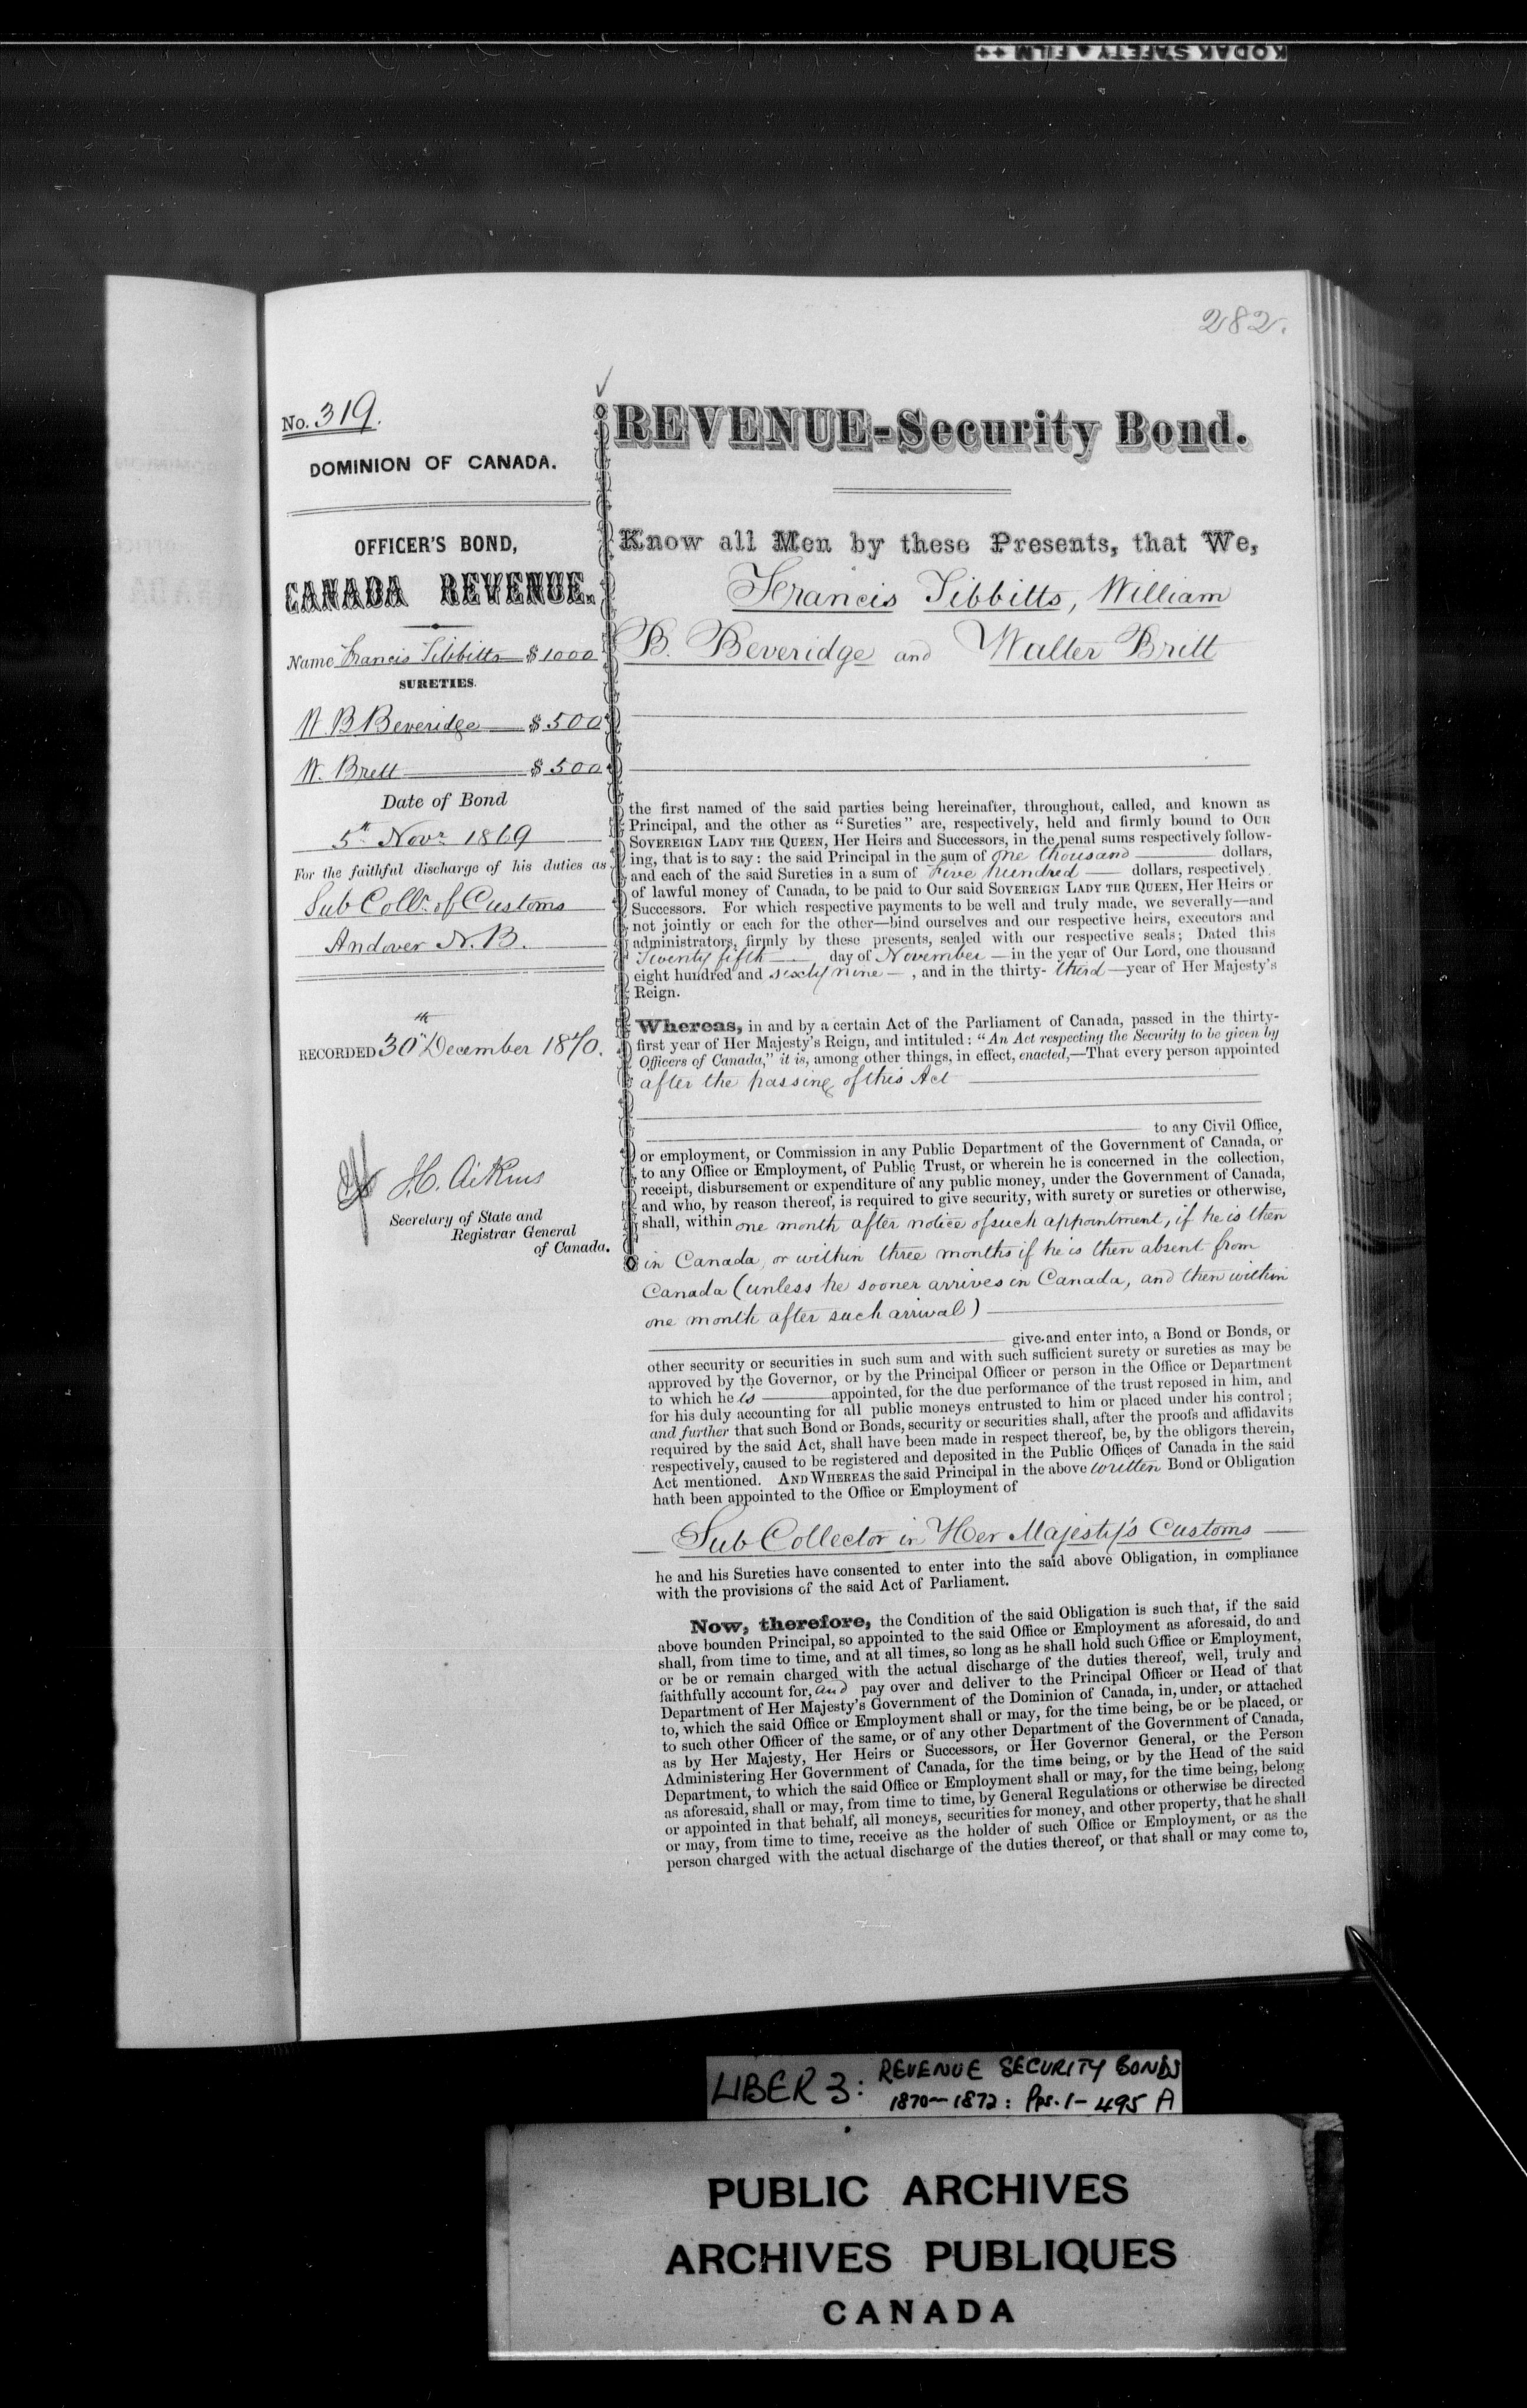 KODAK SAFETY FILM
282.
No. 319.
DOMINION OF CANADA.
OFFICER'S BOND,
CANADA REVENUE.
Name Francis Tibbitts $1000
SURETIES.
W. B Beveridge $500
W. Brett $500
Date of Bond
5th Novr 1869
For the faithful discharge of his duties as
Sub Collr. of Customs
Andover N.B.
RECORDED 30th December 1870.
J.C. Aikins
Secretary of State and
Registrar General
of Canada.
REVENUE-Security Bond.
Know all Men by these Presents, that We,
Francis Tibbitts, William
B. Beveridge and Walter Brett
the first named of the said parties being hereinafter, throughout, called, and known as
Principal, and the other as "Sureties" are, respectively, held and firmly bound to OUR
SOVEREIGN LADY THE QUEEN, Her Heirs and Successors, in the penal sums respectively follow-
ing, that is to say: the said Principal in the sum of One thousand dollars,
and each of the said Sureties in a sum of Five hundred dollars, respectively
of lawful money of Canada, to be paid to Our said SOVEREIGN LADY THE QUEEN, Her Heirs or
Successors. For which respective payments to be well and truly made, we severally—and
not jointly or each for the other—bind ourselves and our respective heirs, executors and
administrators, firmly by these presents, sealed with our respective seals; Dated this
Twenty fifth day of November — in the year of Our Lord, one thousand
eight hundred and sixty nine — , and in the thirty- third — year of Her Majesty's
Reign.
Whereas, in and by a certain Act of the Parliament of Canada, passed in the thirty-
first year of Her Majesty's Reign, and intituled: "An Act respecting the Security to be given by
Officers of Canada," it is, among other things, in effect, enacted,—That every person appointed
after the passing of this Act
to any Civil Office,
or employment, or Commission in any Public Department of the Government of Canada, or
to any Office or Employment, of Public Trust, or wherein he is concerned in the collection,
receipt, disbursement or expenditure of any public money, under the Government of Canada,
and who, by reason thereof, is required to give security, with surety or sureties or otherwise,
shall, within one month after notice of such appointment, if he is then
in Canada, or within three months if he is then absent from
Canada (unless he sooner arrives in Canada, and then within
one month after such arrival)
give and enter into, a Bond or Bonds, or
other security or securities in such sum and with such sufficient surety or sureties as may be
approved by the Governor, or by the Principal Officer or person in the Office or Department
to which he is appointed, for the due performance of the trust reposed in him, and
for his duly accounting for all public moneys entrusted to him or placed under his control;
and further that such Bond or Bonds, security or securities shall, after the proofs and affidavits
required by the said Act, shall have been made in respect thereof, be, by the obligors therein,
respectively, caused to be registered and deposited in the Public Offices of Canada in the said
Act mentioned. AND WHEREAS the said Principal in the above written Bond or Obligation
hath been appointed to the Office or Employment of
Sub Collector in Her Majesty's Customs
he and his Sureties have consented to enter into the said above Obligation, in compliance
with the provisions of the said Act of Parliament.
Now, therefore, the Condition of the said Obligation is such that, if the said
above bounden Principal, so appointed to the said Office or Employment as aforesaid, do and
shall, from time to time, and at all times, so long as he shall hold such Office or Employment,
or be or remain charged with the actual discharge of the duties thereof, well, truly and
faithfully account for, and pay over and deliver to the Principal Officer or Head of that
Department of Her Majesty's Government of the Dominion of Canada, in, under, or attached
to, which the said Office or Employment shall or may, for the time being, be or be placed, or
to such other Officer of the same, or of any other Department of the Government of Canada,
as by Her Majesty, Her Heirs or Successors, or Her Governor General, or the Person
Administering Her Government of Canada, for the time being, or by the Head of the said
Department, to which the said Office or Employment shall or may, for the time being, belong
as aforesaid, shall or may, from time to time, by General Regulations or otherwise be directed
or appointed in that behalf, all moneys, securities for money, and other property, that he shall
or may, from time to time, receive as the holder of such Office or Employment, or as the
person charged with the actual discharge of the duties thereof, or that shall or may come to,
LIBER 3: REVENUE SECURITY BONDS
1870-1872: Pps. 1-495 A
PUBLIC ARCHIVES
ARCHIVES PUBLIQUES
CANADA